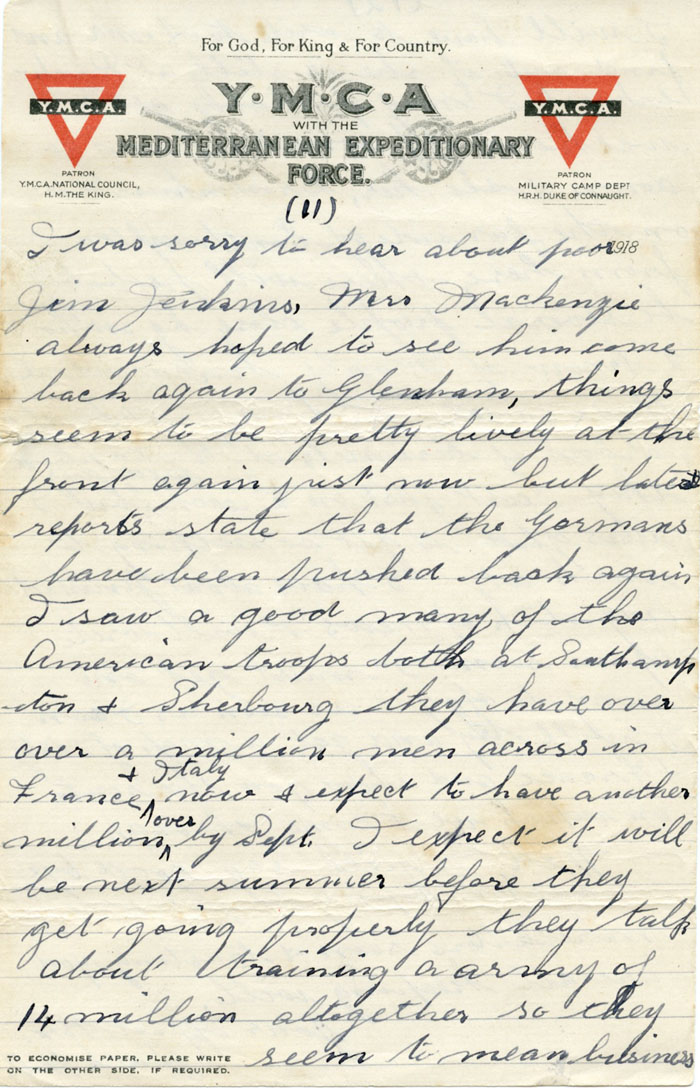 For God, For King & For Country.
Y·M·C·A
Y.M.C.A.
Y.M.C.A.
WITH THE
MEDITERRANEAN EXPEDITIONARY
FORCE.
PATRON
Y.M.C.A. NATIONAL COUNCIL,
H.M. THE KING.
PATRON
MILITARY CAMP DEPT
H.R.H. DUKE OF CONNAUGHT.
(11)
1918
I was sorry to hear about poor
Jim Jenkins, Mrs Mackenzie
always hoped to see him come
back again to Glenham, things
seem to be pretty lively at the
front again just now but latest
reports state that the Germans
have been pushed back again
I saw a good many of the
American troops both at Southamp
-ton & Sherbourg they have over
over a million men across in
France & Italy now & expect to have another
million over by Sept. I expect it will
be next summer before they
get going properly they talk
about training a army of
14 million altogether so they
seem to mean business
TO ECONOMISE PAPER, PLEASE WRITE
ON THE OTHER SIDE, IF REQUIRED.